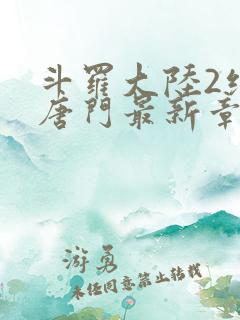 斗羅大陸2
唐門最新章
游勇
未经同意禁止转载